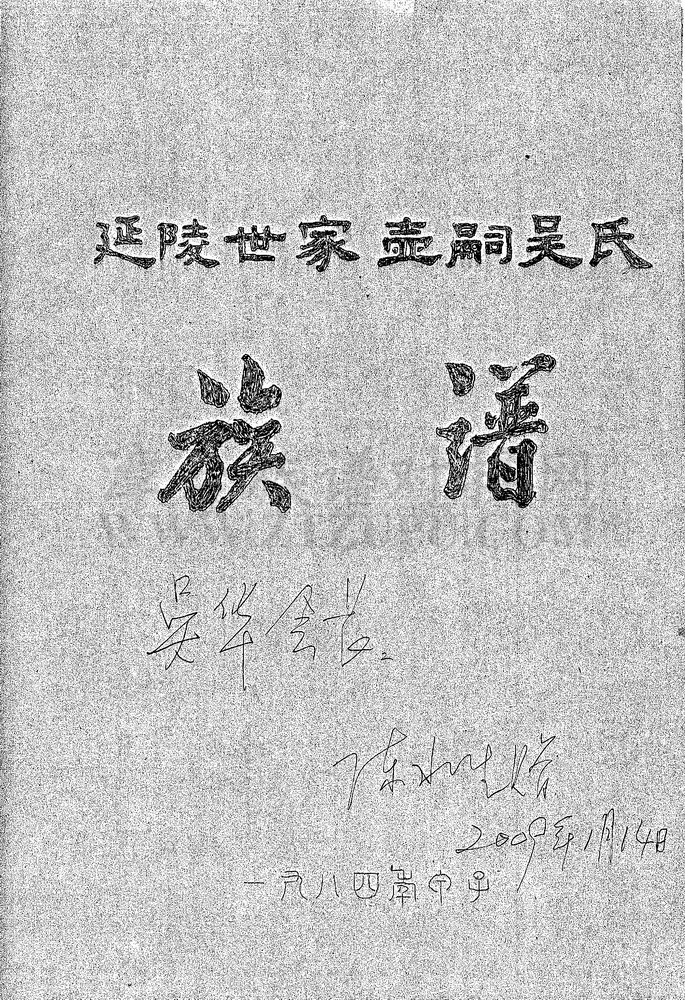 延陵世家壶嗣吴氏
族谱
吴华会长:
陈水生贻
2009年1月14日
一九八四年甲子